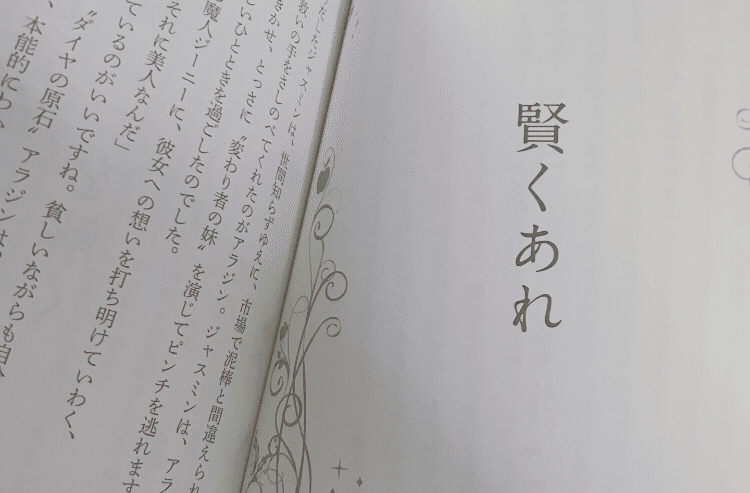 賢くあれ
だしたジャスミンは、世間知らずゆえに、市場で泥棒と間違えられ
救いの手をさしのべてくれたのがアラジン。ジャスミンは、アラ
きかせ、とっさに〝変わり者の妹〟を演じてピンチを逃れます
いひとときを過ごしたのでした。
魔人ジーニーに、彼女への想いを打ち明けていわく、
それに美人なんだ」
ているのがいいですね。貧しいながらも自分
〝ダイヤの原石〟アラジンは、
本能的にわか